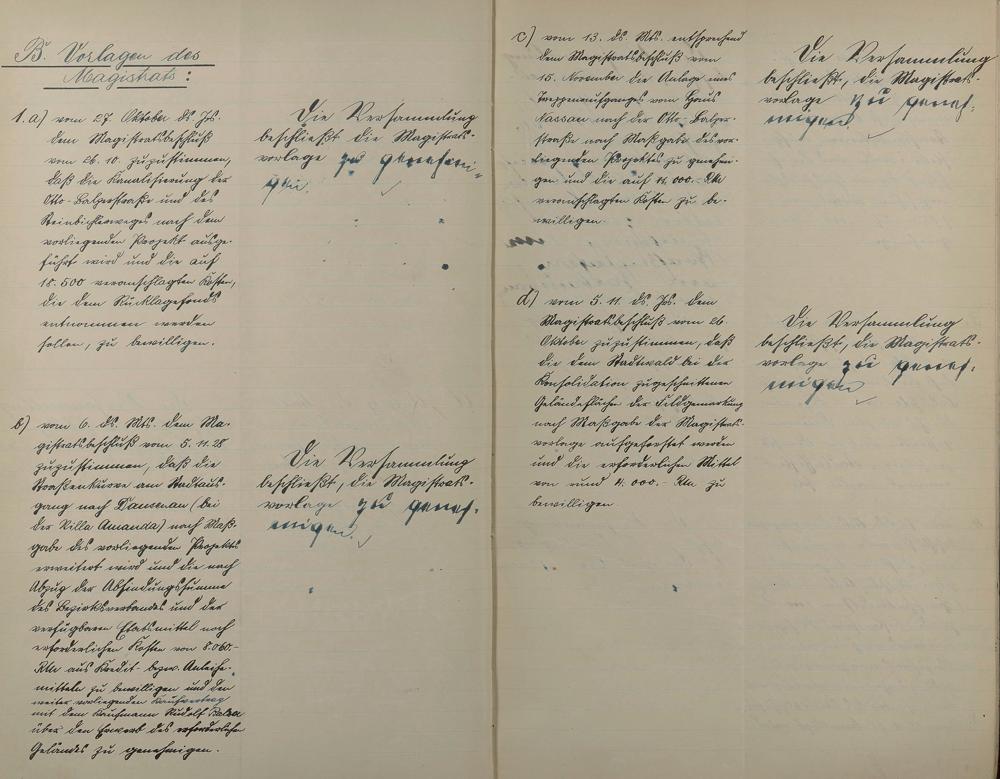 B. Vorlagen des
Magistrats:
1. a) vom 27 Oktober ds Js.
dem Magistratsbeschluß
vom 26. 10. zuzustimmen,
daß die Kanalisierung der
Otto-Balzerstraße und des
nach dem
vorliegenden Projekt ausge-
führt wird und die auf
18.500 veranschlagten Kosten,
die dem Rücklagefonds
entnommen werden
sollen, zu bewilligen.
Die Versammlung
beschließt die Magistrats-
vorlage zu genehmi-
gen.
b) vom 6. ds. Mts. dem Ma-
gistratsbeschluß vom 5.11.28
zuzustimmen, daß die
Straßenkurve am Stadtaus-
gang nach Dausenau (bei
der Villa Amanda) nach Maß-
gabe des vorliegenden Projekts
erweitert wird und die nach
Abzug der Abfindungssumme
des Bezirksverbandes und der
verfügbaren Etatsmittel noch
erforderlichen Kosten von 8.060.-
RM aus Kredit- bezw. Anleihe-
mitteln zu bewilligen und den
weiter vorliegenden Kaufvertrag
mit dem Kaufmann Rudolf Balzer
über den Erwerb des erforderlichen
Geländes zu genehmigen.
Die Versammlung
beschließt, die Magistrats-
vorlage zu geneh-
migen.
c) vom 13. ds. Mts. entsprechend
dem Magistratsbeschluß vom
15. November die Anlage eines
Treppenaufganges vom Haus
Nassau nach der Otto-Balzer-
straße nach Maßgabe des vor-
liegenden Projektes zu genehmi-
gen und die auf 11.000.- RM
veranschlagten Kosten zu be-
willigen.
Die Versammlung
beschließt, die Magistrats-
vorlage zu geneh-
migen.
d) vom 5. 11. ds. Js. dem
Magistratsbeschluß vom 26.
Oktober zuzustimmen, daß
die dem Stadtwald bei der
Konsolidation zugeschnittenen
Geländeflächen der Feldgemarkung
nach Maßgabe der Magistrats-
vorlage aufgeforstet werden
und die erforderlichen Mittel
von rund 11.000.- RM zu
bewilligen.
Die Versammlung
beschließt, die Magistrats-
vorlage zu geneh-
migen.